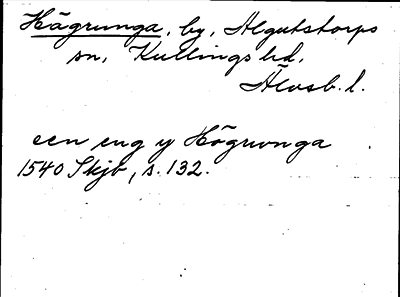 Hägrunga, by, Algutstorps
sn, Kullings hd,
Älvsb. l.
een eng y Högrwnga
1540 Skjb, s. 132.